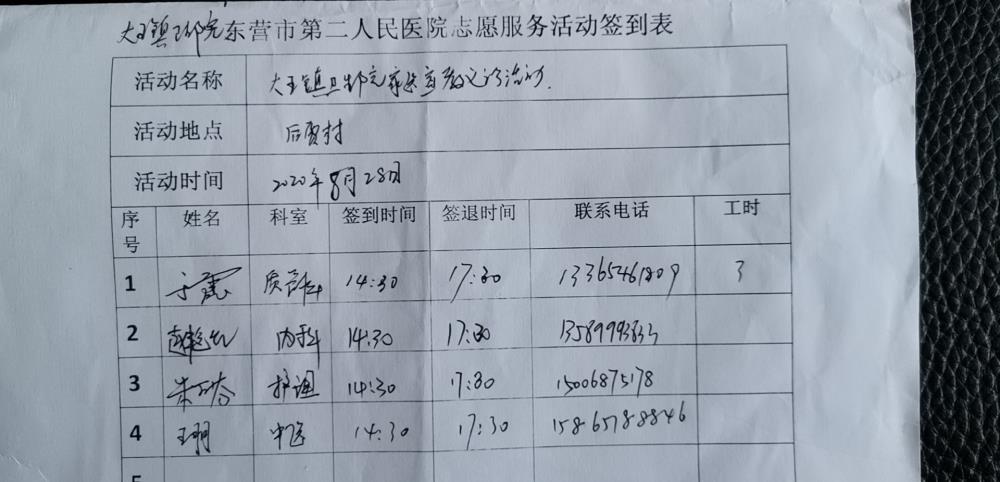 大王镇卫生院东营市第二人民医院志愿服务活动签到表
活动名称 大王镇卫生院 义诊活动
活动地点 后贾村
活动时间 2020年8月28日
序号 姓名 科室 签到时间 签退时间 联系电话 工时
1 质管科 14:30 17:30 13365461809 3
2 内科 14:30 17:30
3 护理 14:30 17:30 15006875178
4 王朋 中医 14:30 17:30 15865788846
5